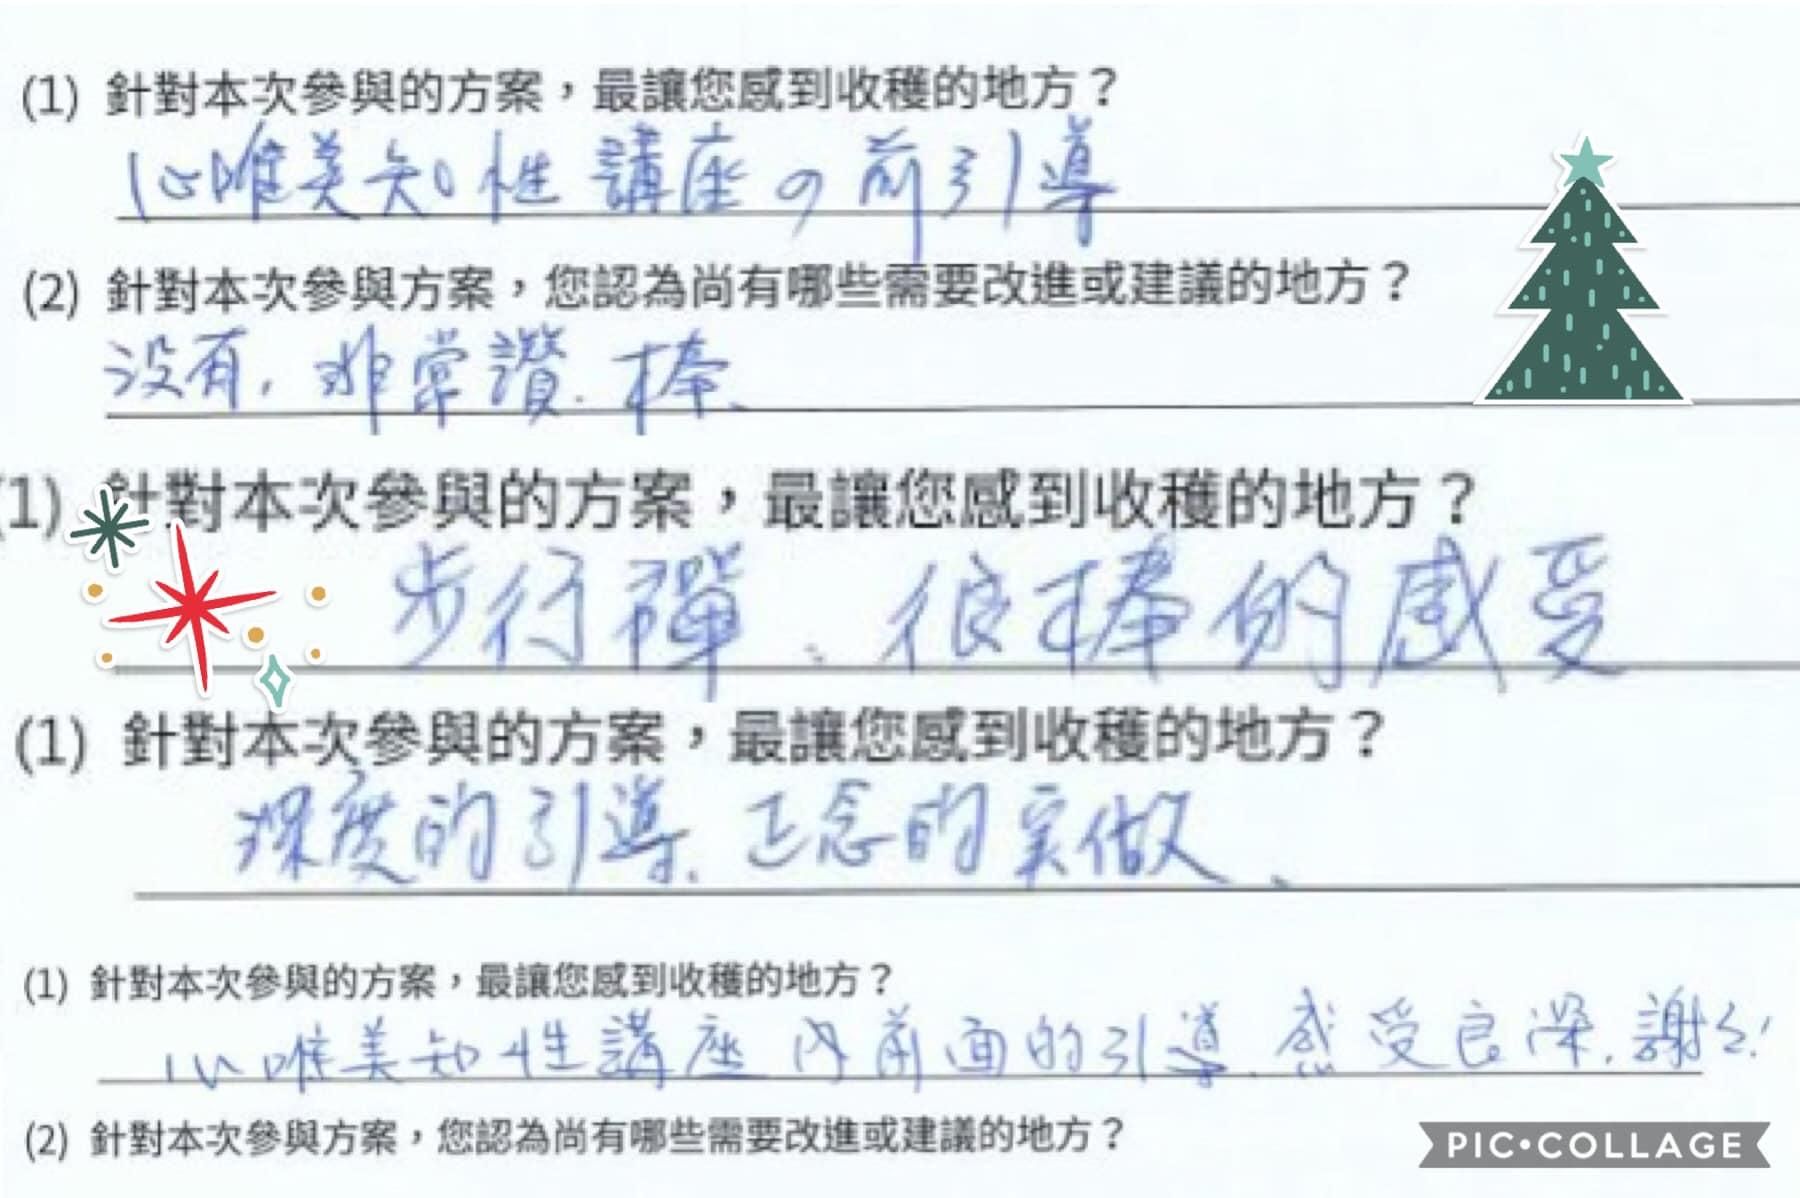 (1) 針對本次參與的方案，最讓您感到收穫的地方？
心唯美知性講座の前引導
(2) 針對本次參與方案，您認為尚有哪些需要改進或建議的地方？
沒有，非常讚．棒、
(1) 針對本次參與的方案，最讓您感到收穫的地方？
步行禪、很棒的感受
(1) 針對本次參與的方案，最讓您感到收穫的地方？
深度的引導、正念的実做、
(1) 針對本次參與的方案，最讓您感到收穫的地方？
心唯美知性講座內前面的引導，感受良深，謝々!
(2) 針對本次參與方案，您認為尚有哪些需要改進或建議的地方？
PIC•COLLAGE